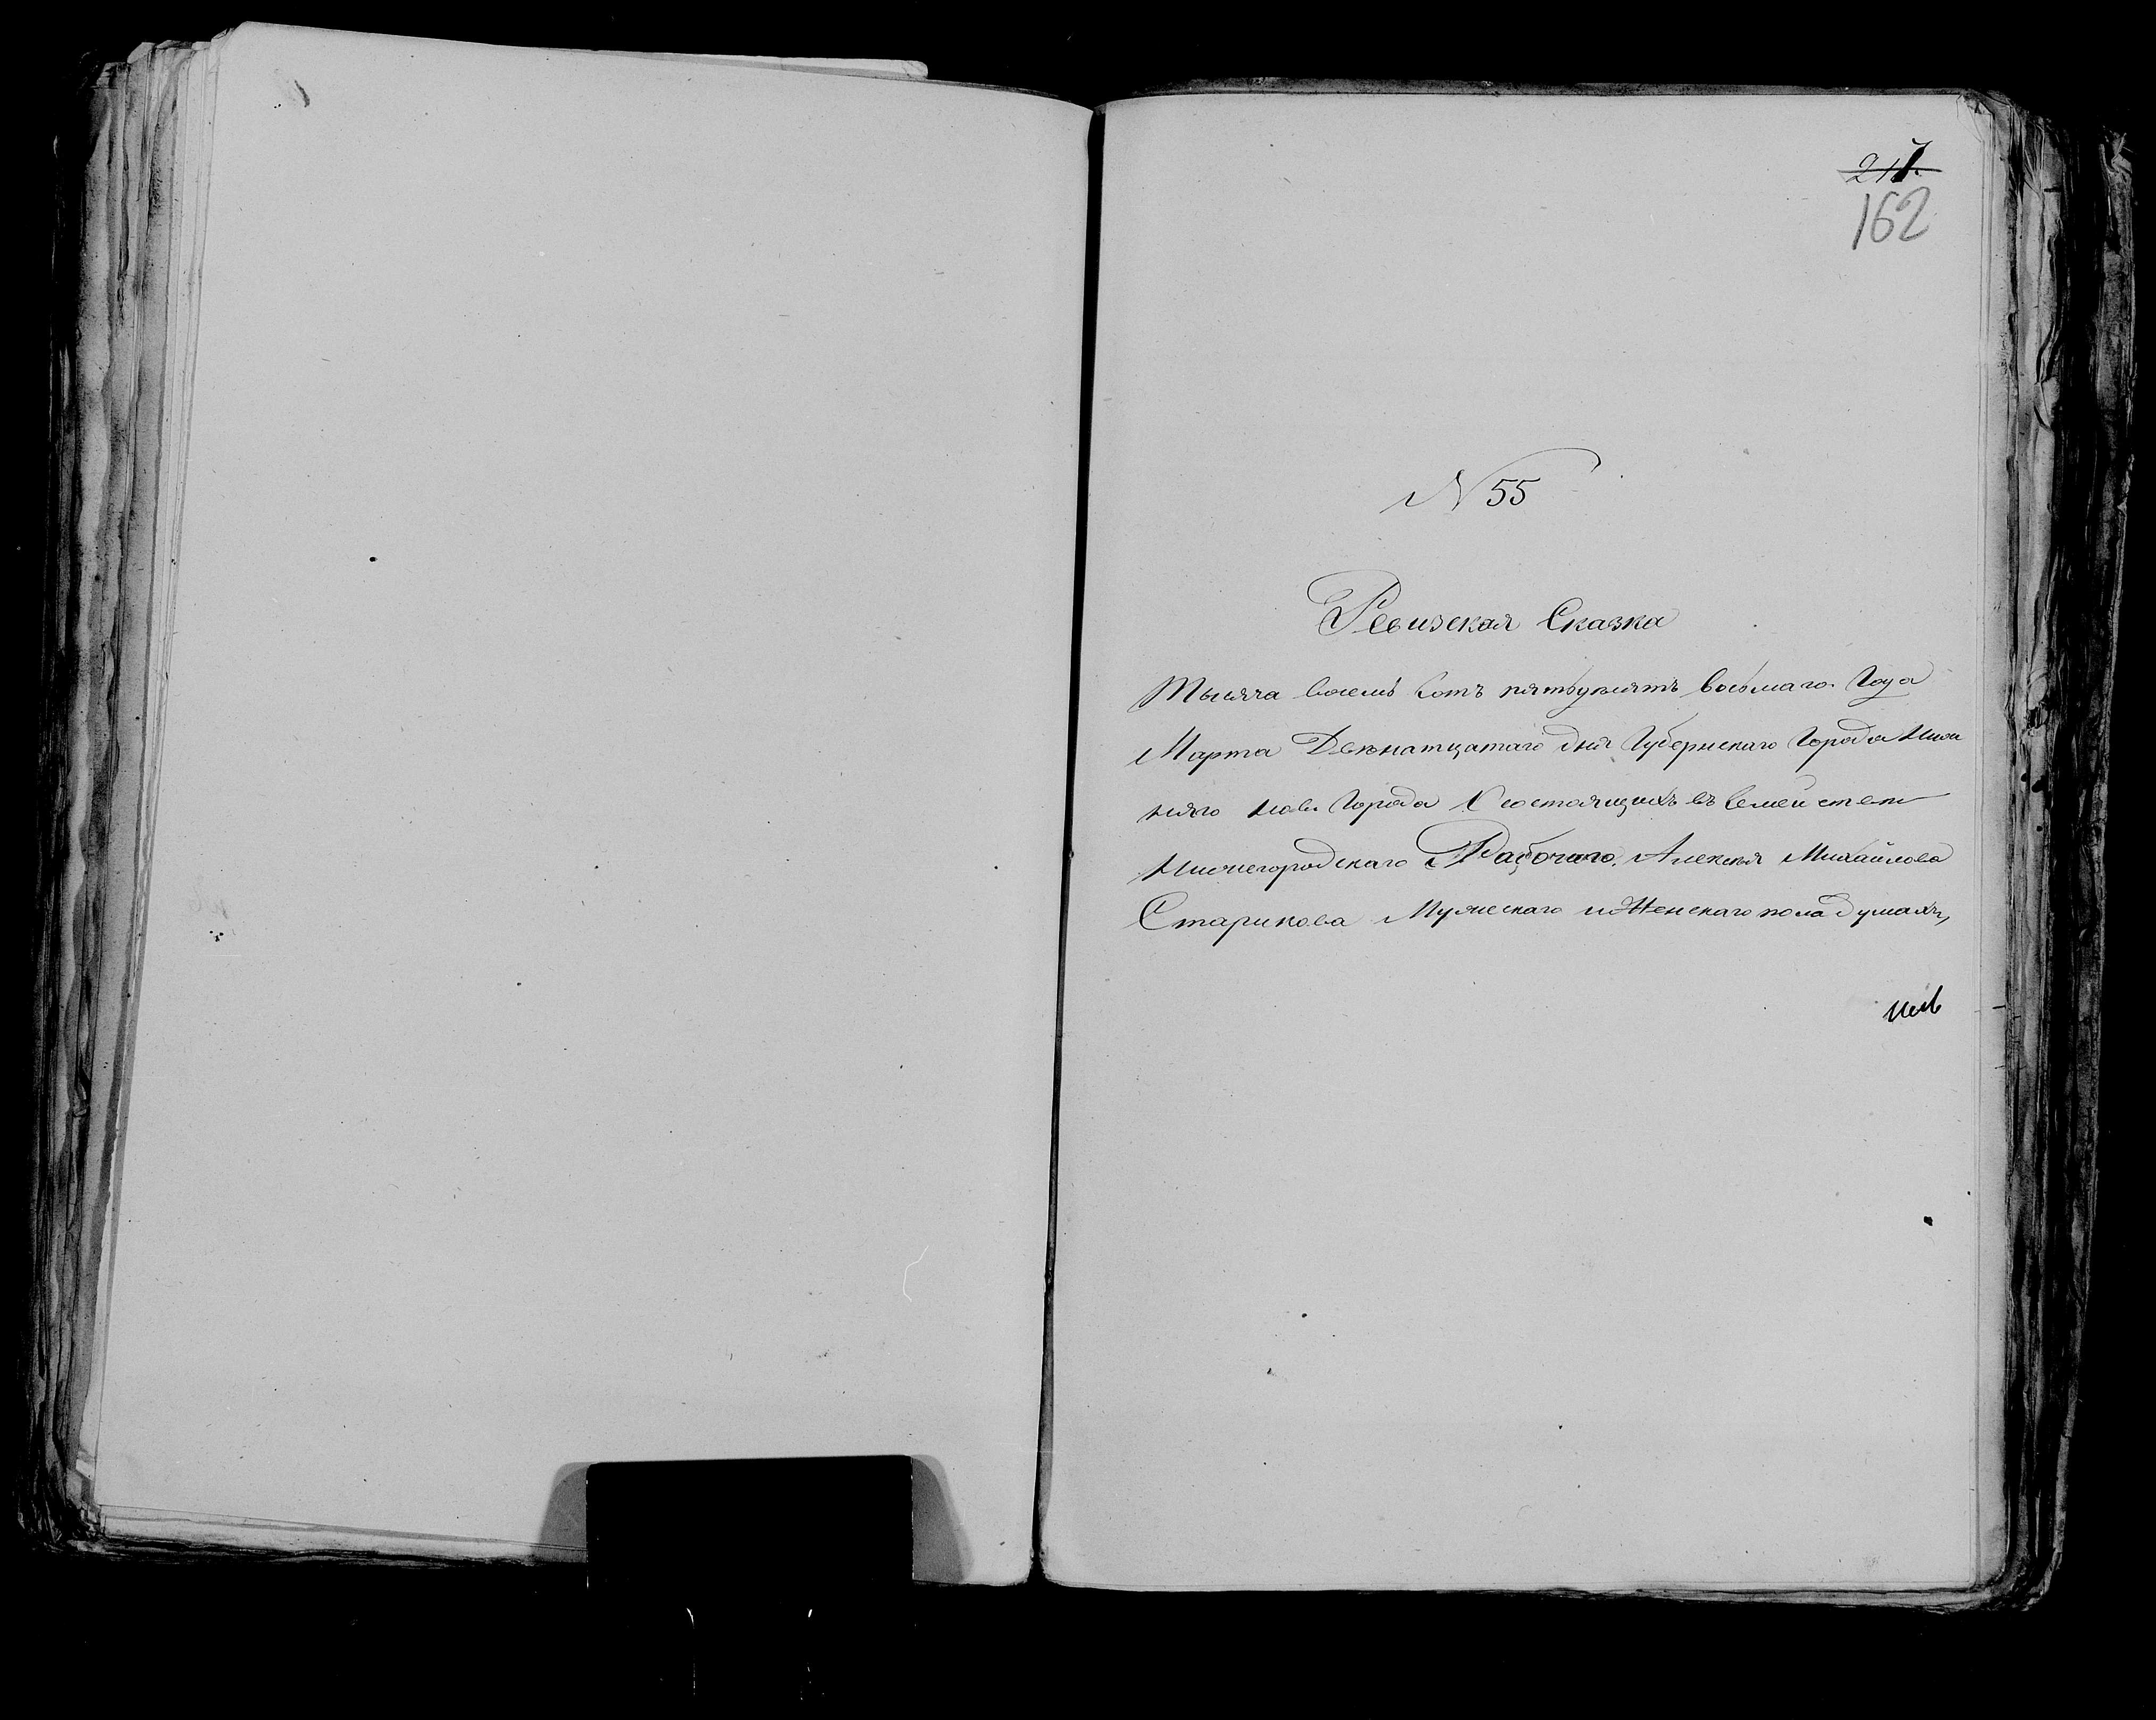 162
N 55
Ревизская Сказка
Тысяча восемь Сотъ пятьдесятъ восьмаго Года
Марта Двенатцатаго дня Губернскаго Города Ниж
няго Нов Города Состоящихъ въ Семействе
Нижегородскаго Рабочаго Алексея Михайлова
Старикова Мужескаго и Женскаго пола душахъ,